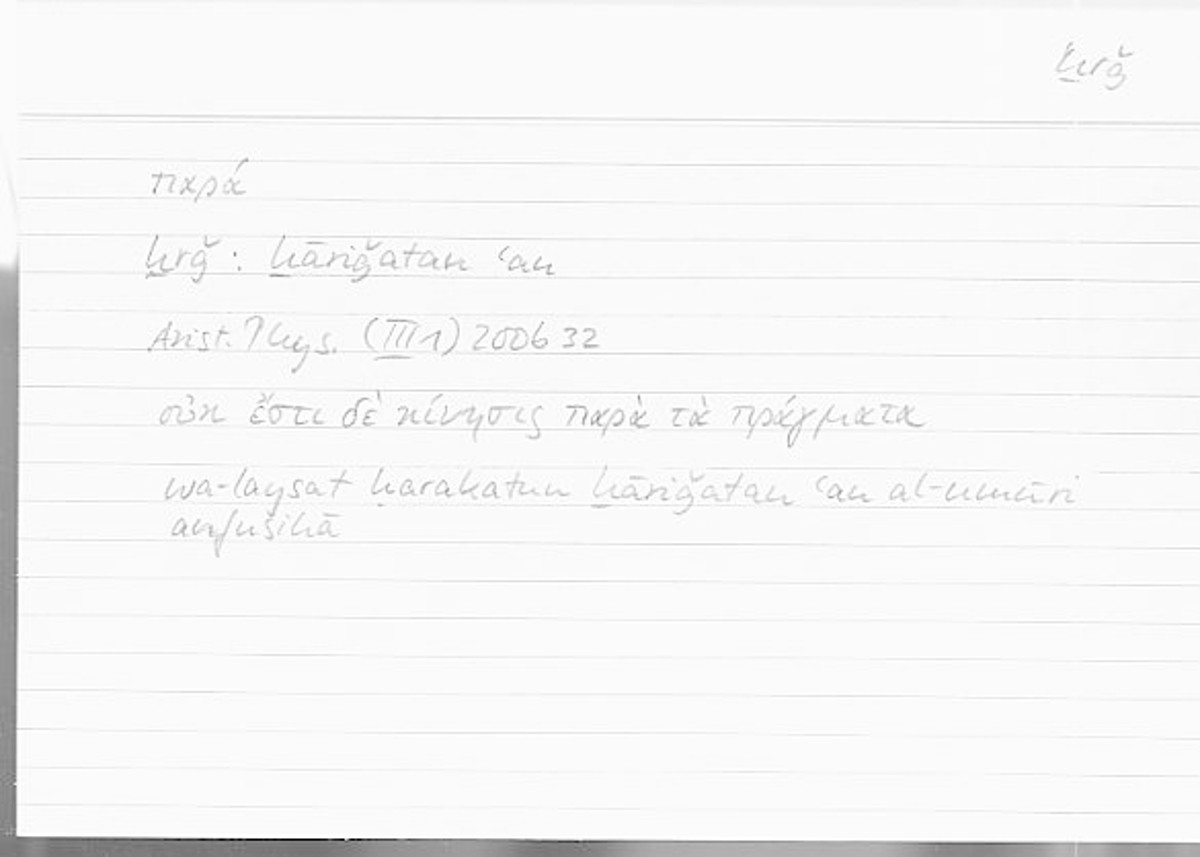 ḫrǧ
παρά
ḫrǧ : ḫāriǧatan ʿan
Arist. Phys. (III 1) 200b 32
οὐκ ἔστι δὲ κίνησις παρὰ τὰ πράγματα
wa-laysat ḥarakatun ḫāriǧatan ʿan al-umūri
anfusihā